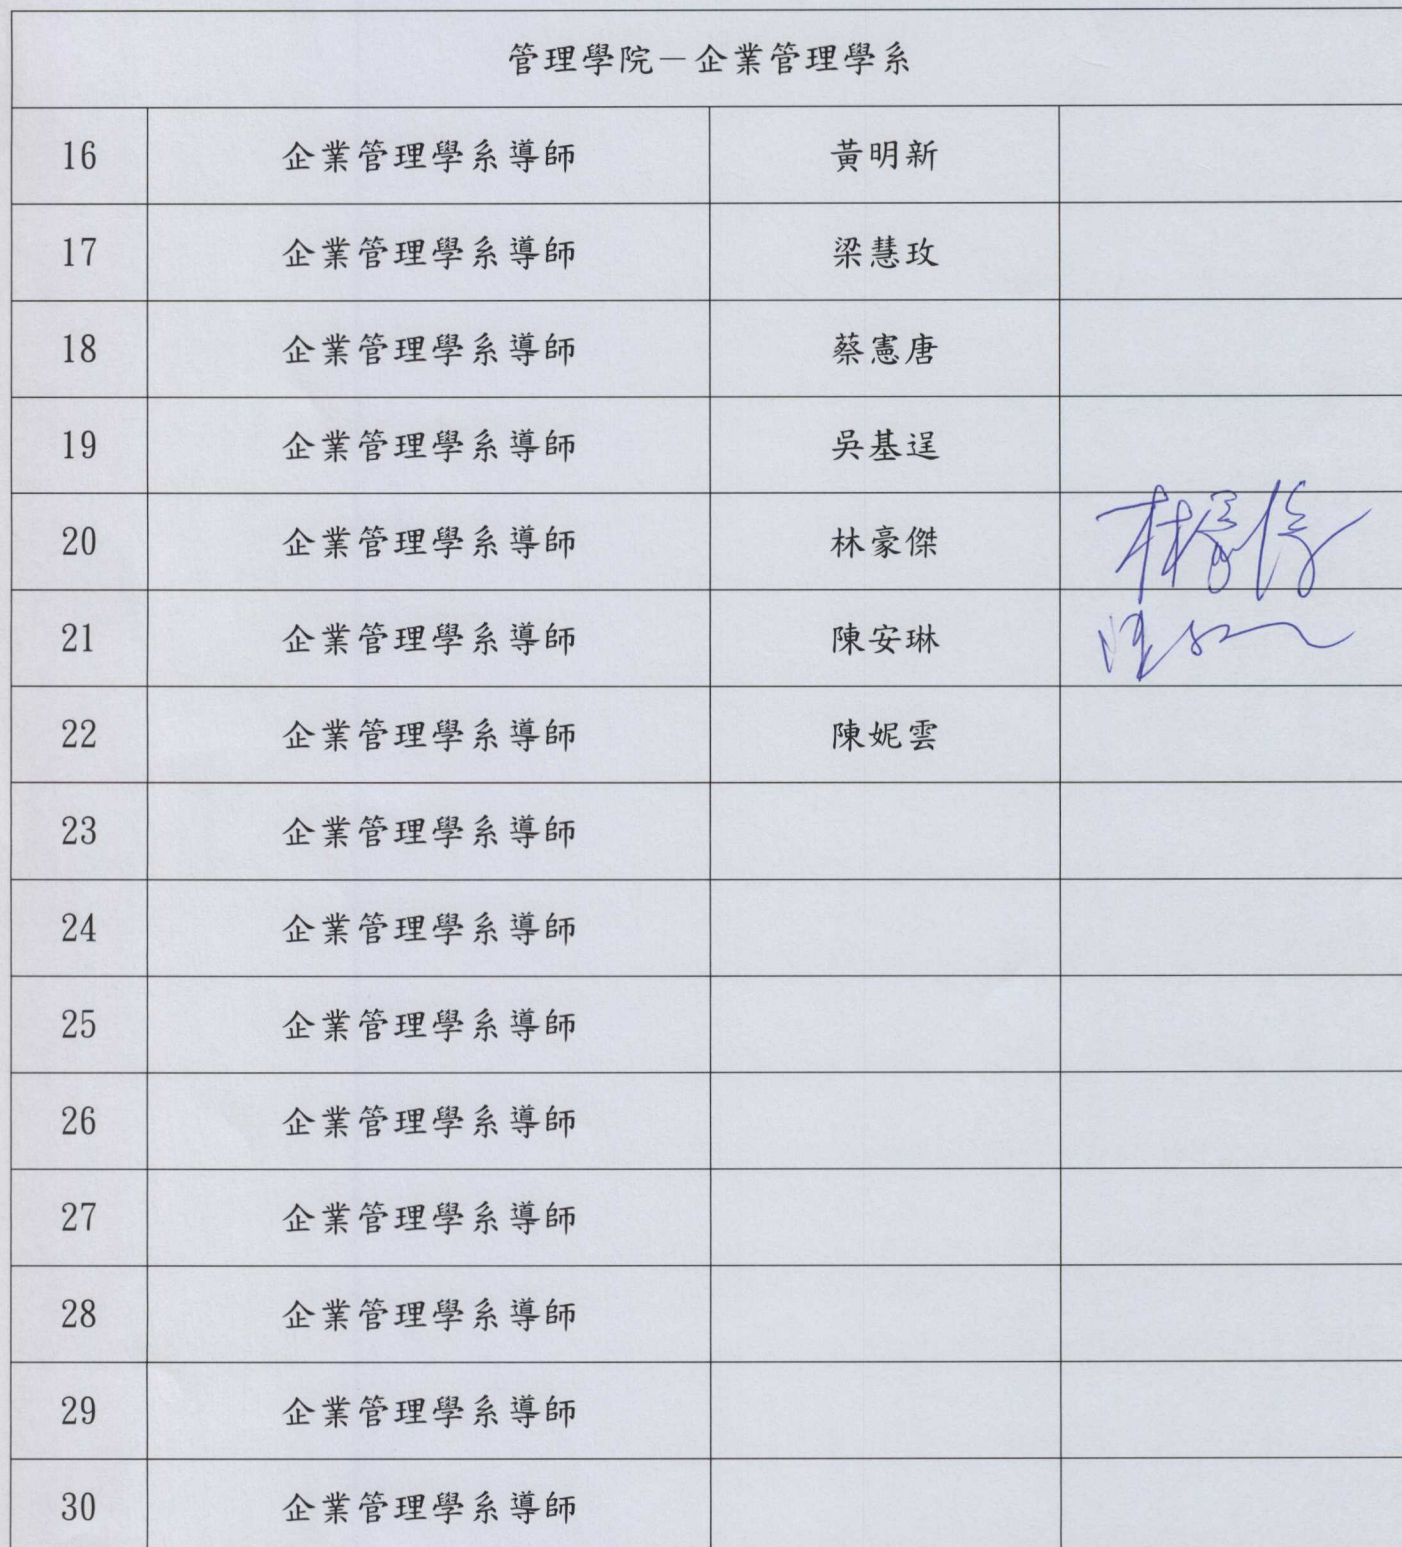 管理學院－企業管理學系
16 企業管理學系導師 黃明新
17 企業管理學系導師 梁慧玫
18 企業管理學系導師 蔡憲唐
19 企業管理學系導師 吳基逞
20 企業管理學系導師 林豪傑 林豪傑
21 企業管理學系導師 陳安琳
22 企業管理學系導師 陳妮雲
23 企業管理學系導師
24 企業管理學系導師
25 企業管理學系導師
26 企業管理學系導師
27 企業管理學系導師
28 企業管理學系導師
29 企業管理學系導師
30 企業管理學系導師